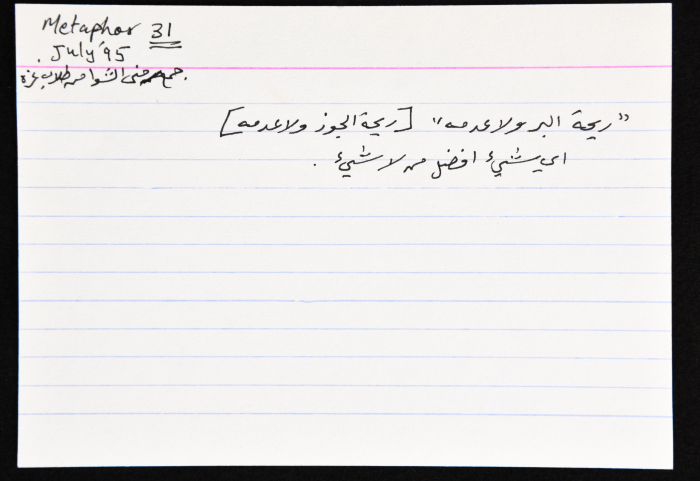 Metaphor 31
July '95
جمع منى الشوا من طلاب غزة.
"ريحة البر ولا عدمه" [ريحة الجوز ولا عدمه]
اي شيئ افضل من لا شيئ.